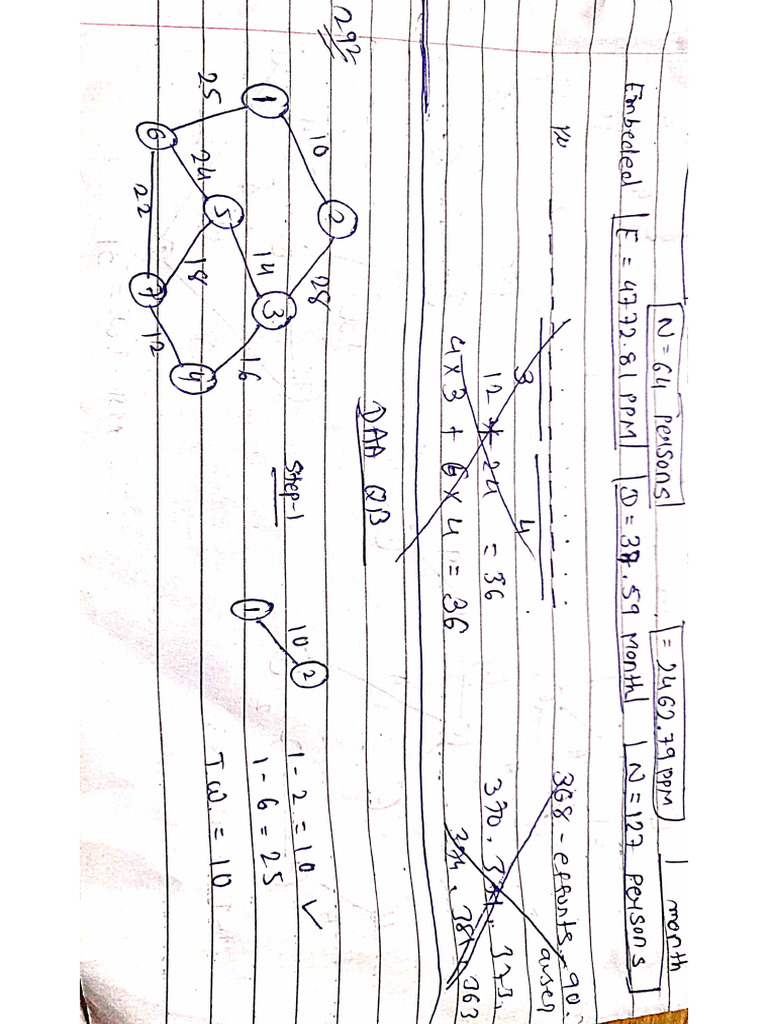 month
N=64 persons = 2462.79 PPM
Embeded E = 4772.81 PPM D = 37.59 Month N=127 Persons
368 - efforts - 90.
3 4 answer
12 + 24 = 36 370,
373,
4x3 + 6x4 = 36 374, 381, 363
DAA QB
292
1 10 2 28 3 14 5 24 6 25 22 7 18 12 4 16
Step-1
1 10 2
1-2 = 10 ✓
1-6 = 25
TW = 10